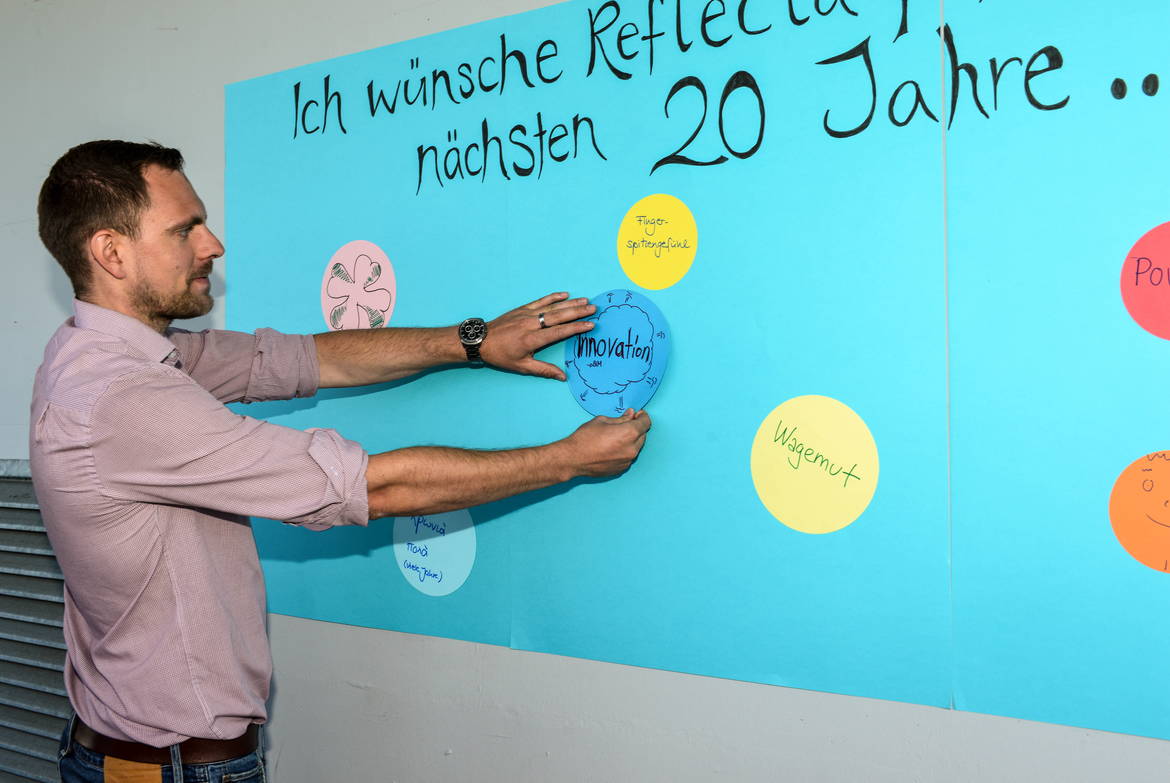 Ich wünsche Reflecta
nächsten 20 Jahre ...
Finger-
spitzengefühl
Innovation
Wagemut
χρόνια
πολά
(viele Jahre)